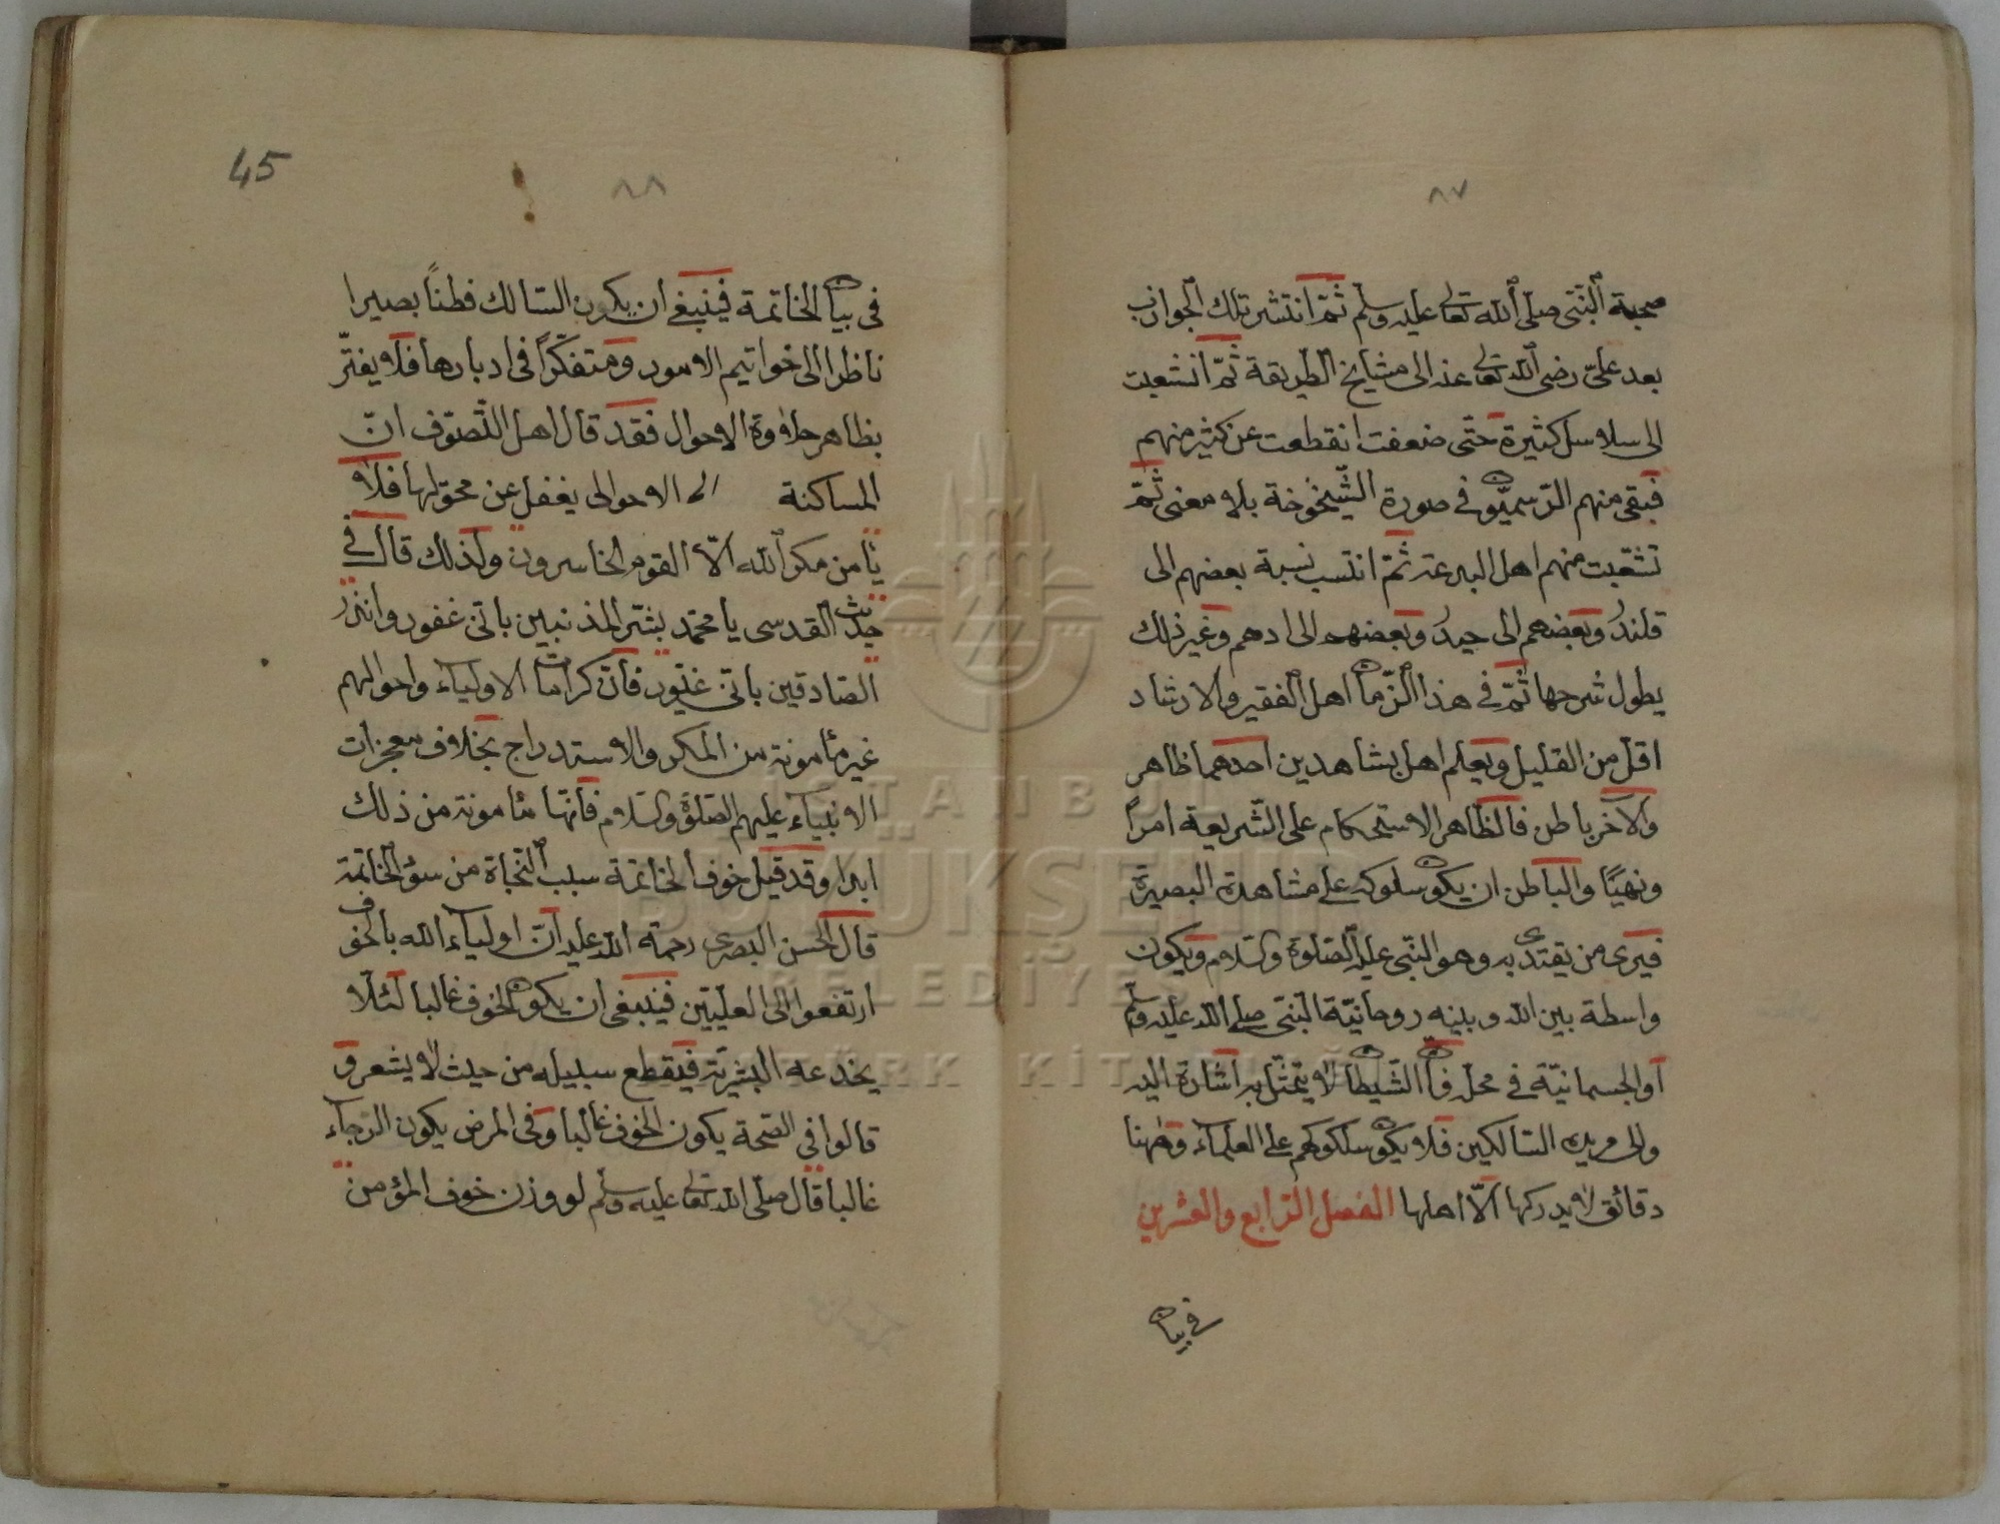 ٨٧
صحبة النّبىّ صلّى الله تعالى عليه وسلّم ثمّ انتشر تلك الجواذب
بعد علىّ رضى الله تعالى عنه الى مشايخ الطريقة ثمّ انشعبت
الى سلاسل كثيرة حتّى ضعفت انقطعت عن كثير منهم
فبقى منهم الرّسميّون فى صورة الشّيخوخة بلا معنى ثمّ
تشعّبت منهم اهل البدعة ثمّ انتسب نسبة بعضهم الى
قلندر وبعضهم الى حيدر وبعضهم الى ادهم وغير ذلك
يطول شرحها ثمّ فى هذا الزّمان اهل الفقير والارشاد
اقلّ من القليل ويعلم اهل بشاهدين احدهما ظاهر
والآخر باطن فالظاهر الاستحكام على الشّريعة امراً
ونهيّا والباطن ان يكون سلوكه على مشاهدة البصيرة
فيرى من يقتدى به وهو النّبى عليه الصّلوة والسّلام ويكون
واسطة بين الله وبينه روحانيّة النّبىّ صلى الله عليه وسلّم
او الجسمانيّة فى محلّه فانّ الشّيطان لا يتمثّل به اشارة اليه
والى مريديه السّالكين فلا يكون سلكوكهم على العلماء وههنا
دقائق لا يدركها الّا اهلها الفصل الرّابع والعشرين
فى بيان
45
٨٨
فى بيان الخاتمة فينبغى ان يكون السّالك فطناً بصيرا
ناظرا الى خواتيم الامور ومتفكّراً فى ادبارها فلا يفترّ
بظاهر حلاوة الاحوال فقد قال اهل التّصوّف انّ
المساكنة الى الاحوال يغفل عن محوّلها فلا
يأمن مكر الله الّا القوم الخاسرون ولذلك قال فى
حديث القدسى يا محمّد بشّر المذنبين بانّى غفور وانذر
الصّادقين بانّى غيّور فانّ كرامات الاولياء واحوالهم
غير مأمونة من المكر والاستدراج بخلاف معجزات
الانبياء عليهم الصّلوة والسّلام فانّها مأمونة من ذلك
ابدا وقد قيل خوف الخاتمة سبب النّجاة من سوء الخاتمة
قال الحسن البصرى رحمة الله عليه انّ اولياء الله بالخوف
ارتفعوا الى العليّين فينبغى ان يكون الخوف غالبا لئلّا
يخدعه البشريّة فيقطع سبيله من حيث لا يشعر و
قالوا فى الصّحة يكون الخوف غالبا وفى المرض يكون الرّجاء
غالبا قال صلّى الله تعالى عليه وسلّم لو وزن خوف المؤمن